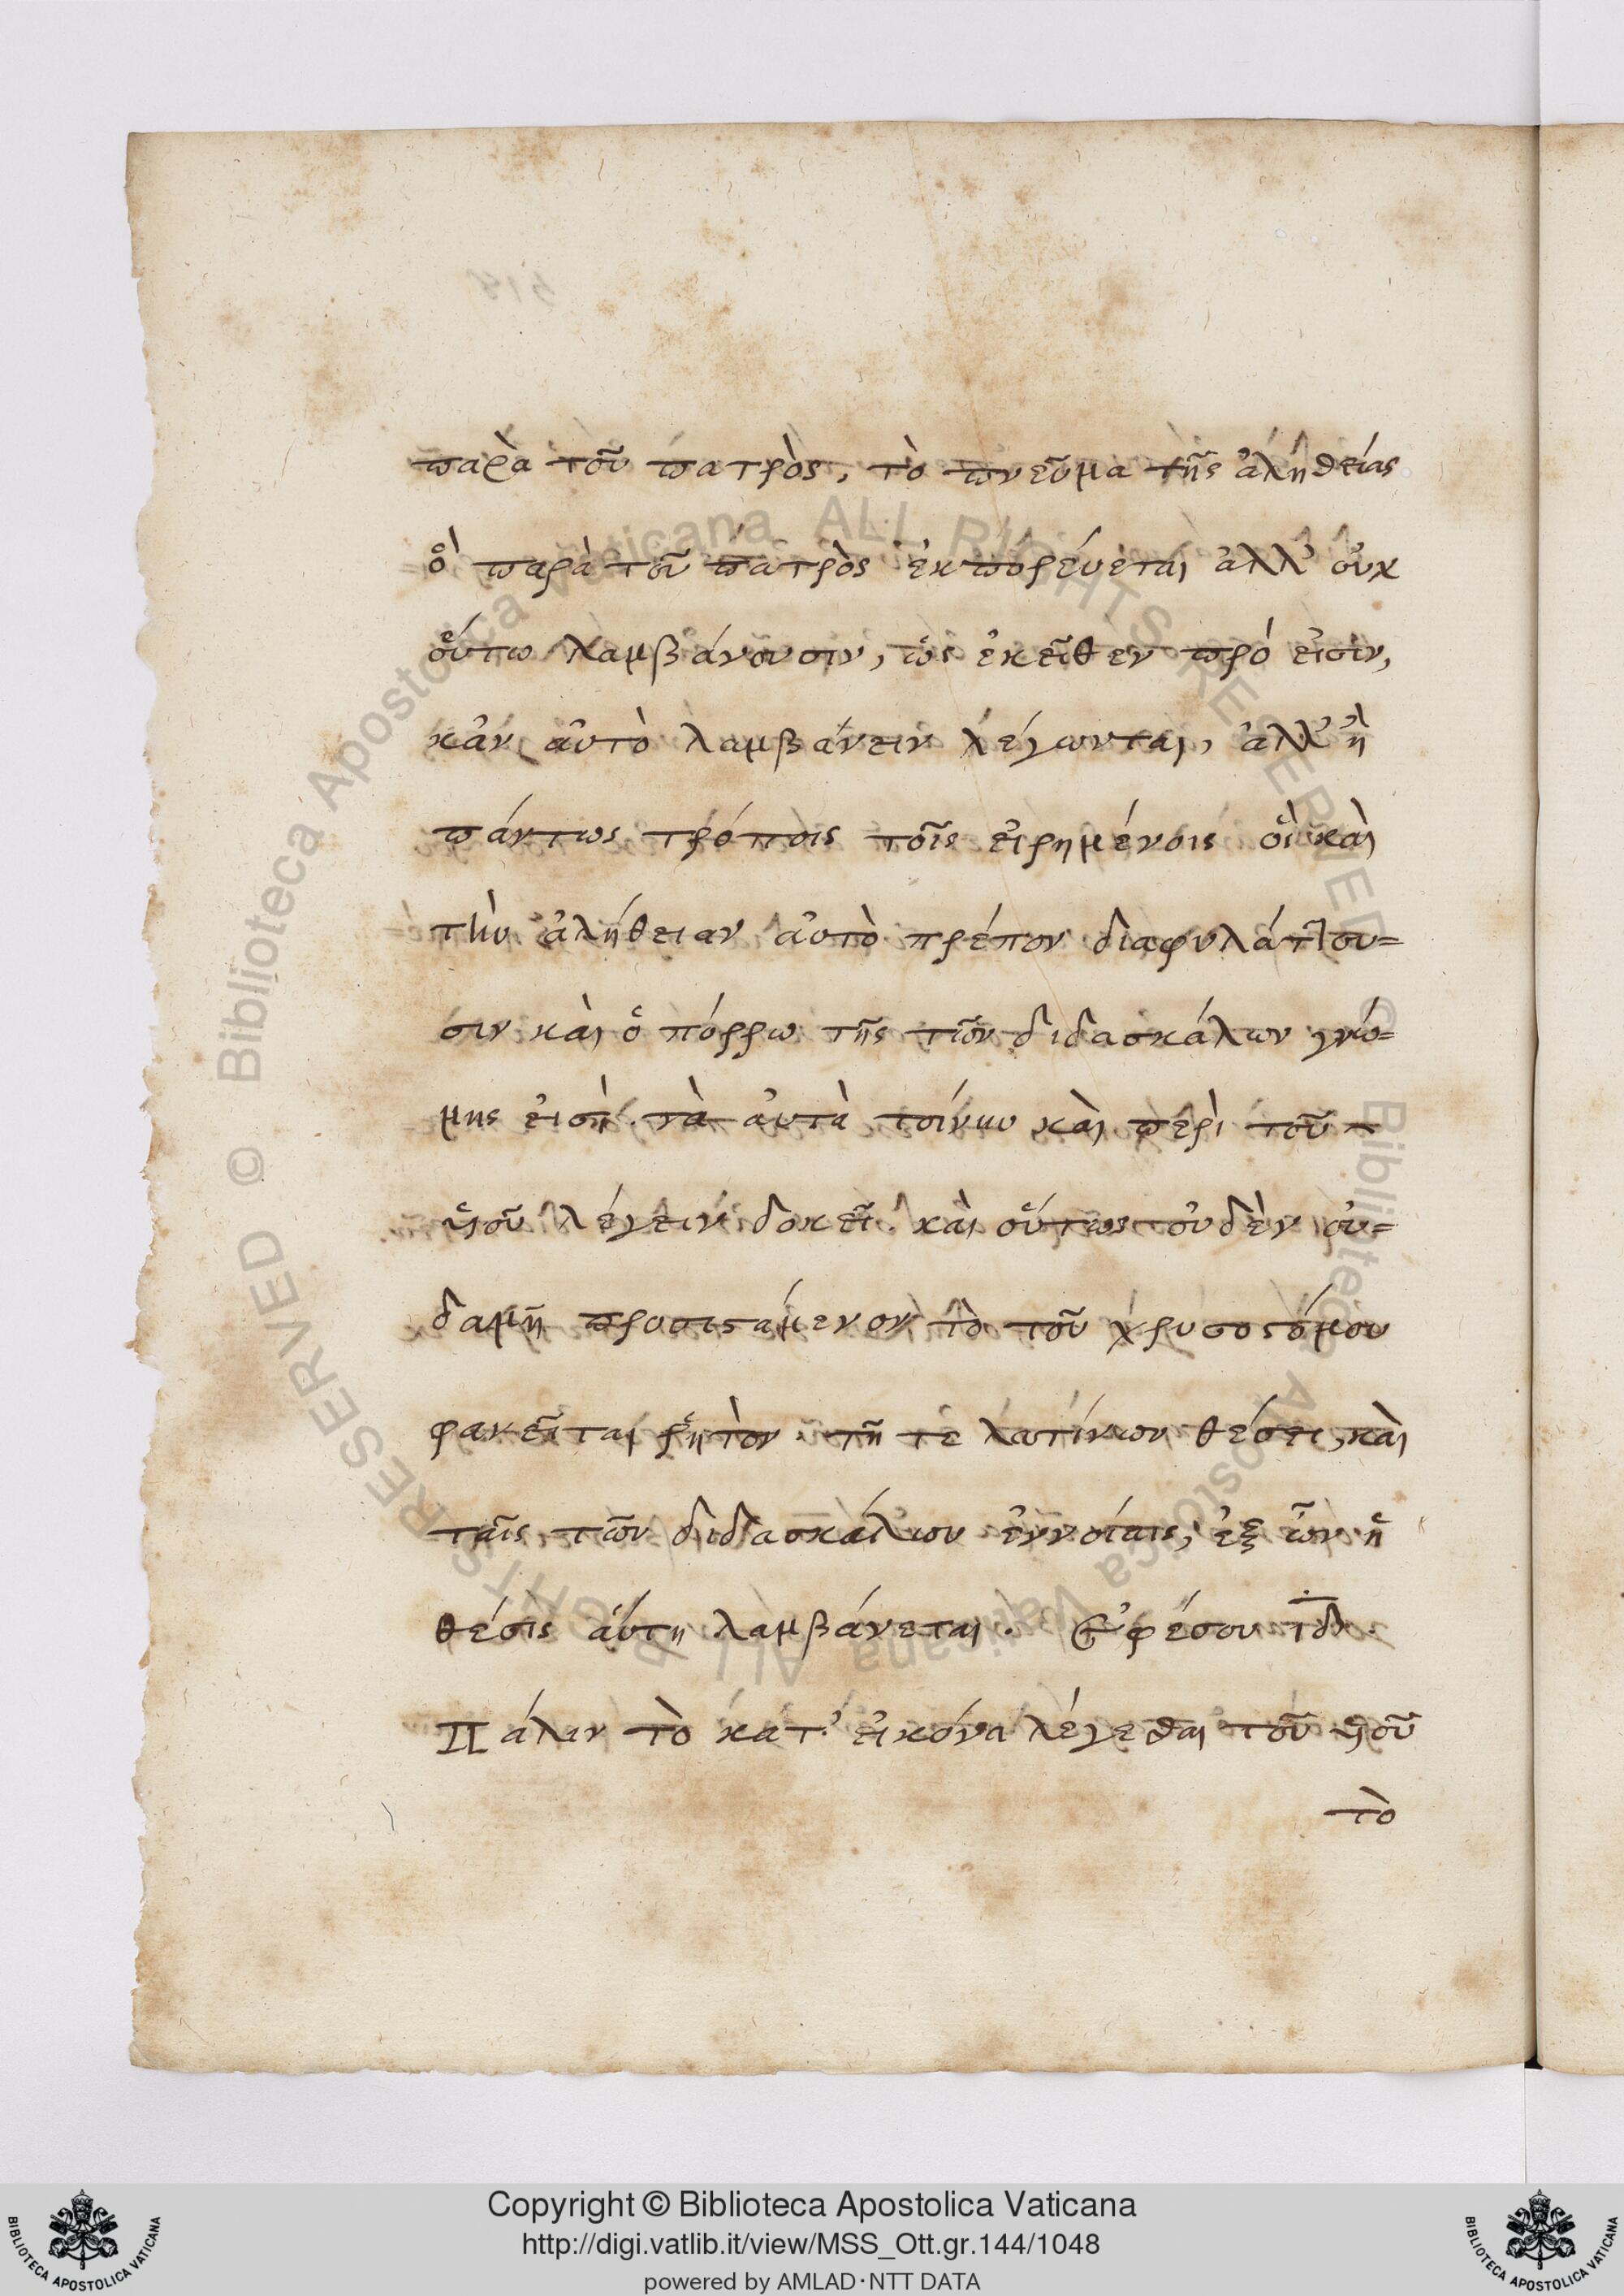 παρὰ τοῦ πατρὸς, τὸ πνεῦμα τῆς ἀληθείας
ὃ παρὰ τοῦ πατρὸς ἐκπορέυεται ἀλλ' οὐχ
οὕτω λαμβάνουσιν, ὡς ἐκεῖθεν πρό εἰσιν,
κἀν αὐτὸ λαμβάνειν λέγωνται, ἀλλ' ἢ
πάντως τρόποις τοῖς εἰρημένοις οἳ καὶ
τὴν ἀλήθειαν αὐτὸ πρέπον διαφυλάττου=
σιν καὶ ὁ πόρρω τῆς τῶν διδασκάλων γνώ=
μης εἰσὴ. τὰ αὐτὰ τοίνυν καὶ περὶ τοῦ
ὑοῦ λέγειν δοκεῖ. καὶ οὕτως οὐδὲν οὐ=
δαμῆ προσιστάμενον τὸ τοῦ χρυσοστόμου
φανεῖται ῥητὸν τῆ τε λατίνων θέσει, καὶ
ταῖς τῶν διδασκάλων ἐννοίαις, ἐξ ὧν ἡ
θέσις ἁύτη λαμβάνεται. Ἐφέσου
Πάλιν τὸ κατ' εἰκόνα λέγεσθαι τοῦ ὑοῦ
τὸ
Copyright © Biblioteca Apostolica Vaticana
http://digi.vatlib.it/view/MSS_Ott.gr.144/1048
powered by AMLAD·NTT DATA
© Biblioteca Apostolica Vaticana ALL RIGHTS RESERVED
© Biblioteca Apostolica Vaticana ALL RIGHTS RESERVED
BIBLIOTECA APOSTOLICA VATICANA
BIBLIOTECA APOSTOLICA VATICANA